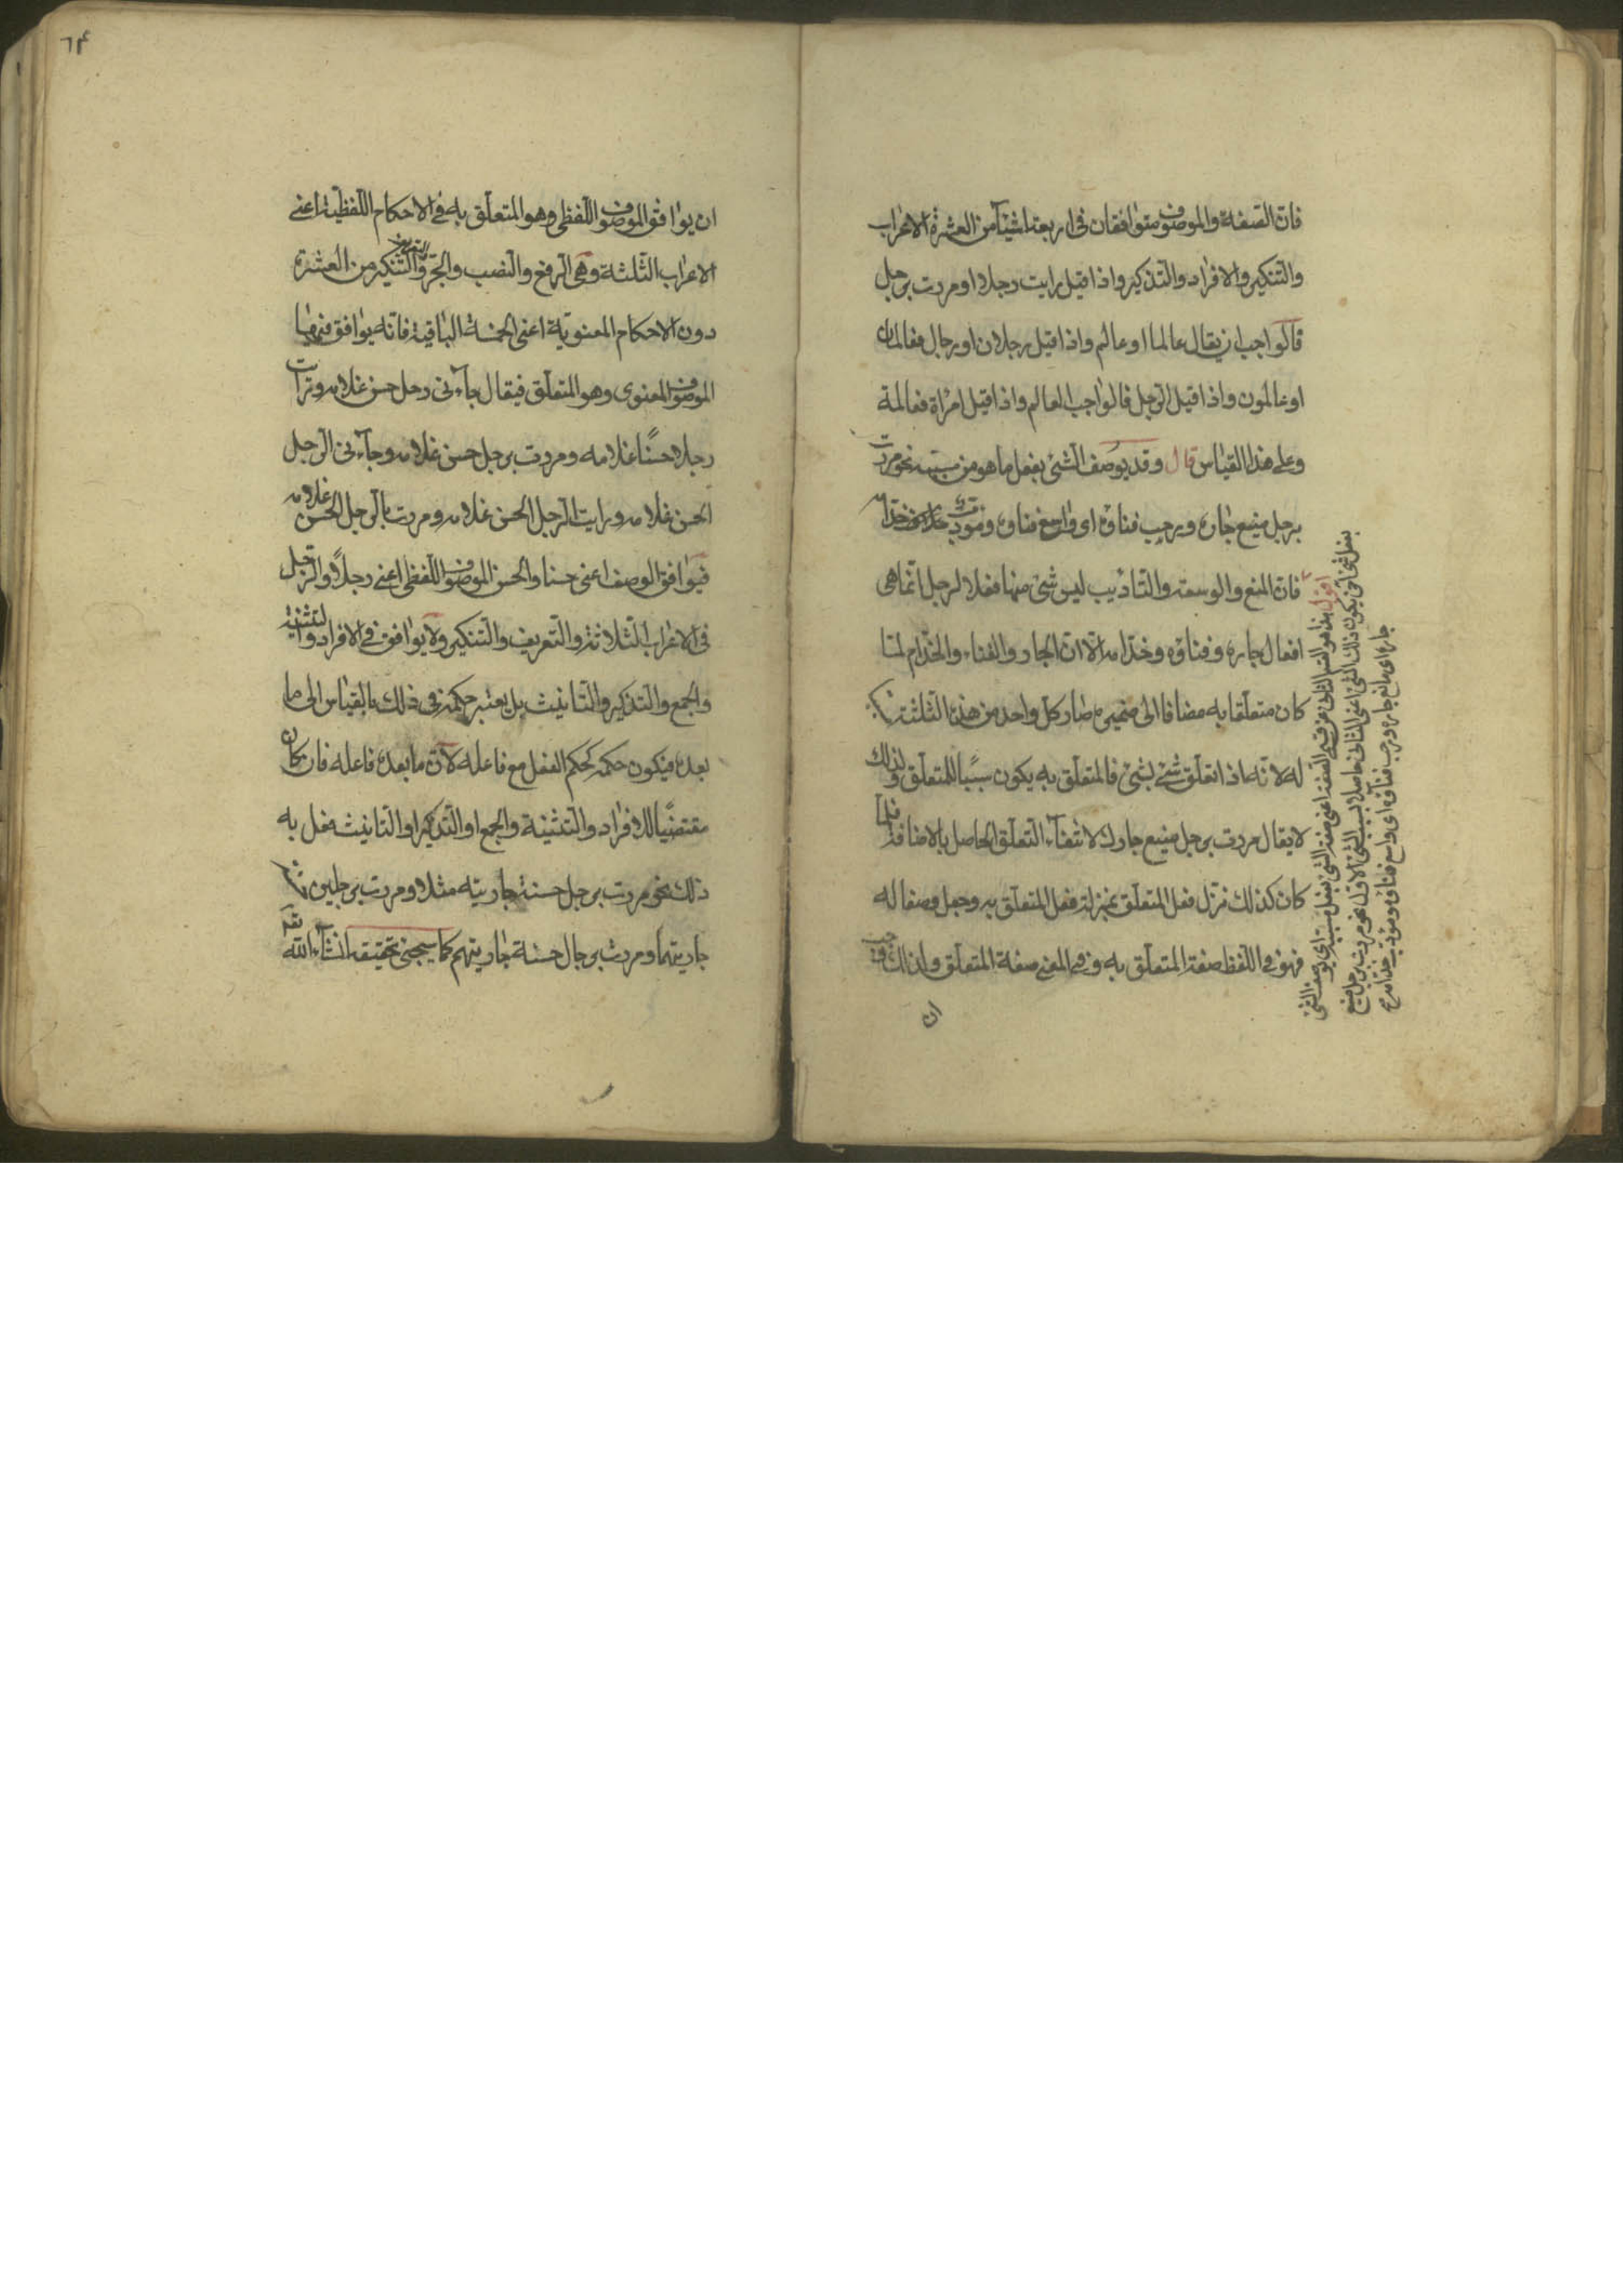 فان الصفة والموصوف متوافقان فى اربعة اشيآء من العشرة الاعراب
والتنكير والافراد والتذكير واذا قيل رايت رجلا او مررت برجل
فالواجب ان يقال عالما او عالم واذا قيل رجلان او رجال فعالمان
او عالمون واذا قيل الرجل فالواجب العالم واذا قيل امراة فعالمة
وعلى هذا القياس قال وقد يوصف الشئ بفعل ما هو من سببه نحو مررت
برجل منيع جاره ورحب فناؤه اى واسع فناؤه ومؤدب خدامه
فان المنع والوسعة والتاديب ليس شئ منها فعلا لرجل انما هى
افعال جاره وفناؤه وخدامه الا ان الجار والفناء والخدام لما
كان متعلقا به مضافا الى ضميره صار كل واحد من هذه الثلثة
له لانه اذا تعلق شئ بشئ فالمتعلق به يكون سببا للمتعلق ولذلك
لا يقال مررت برجل منيع جارك لانتفآء التعلق الحاصل بالاضافة فلما
كان كذلك نزل فعل المتعلق بمنزلة فعل المتعلق به وجعل وصفا له
فهو فى اللفظ صفة المتعلق به وفى المعنى صفة المتعلق ولذلك وجب
ان
اقول هذا هو القسم الثانى من قسمى الصفة اعنى صفة الشئ بفعل مسببه اى يوصف الشئ
بفعل شئ آخر يكون ذلك الشئ اعنى الثانى حاصلا بسبب الشئ الاول نحو مررت برجل منيع
جاره اى مانع جاره ورحب فناؤه اى واسع فناؤه ومؤدب خدامه
٦٤
ان يوافق الموصوف اللفظى وهو المتعلق به فى الاحكام اللفظية اعنى
الاعراب الثلثة وهى الرفع والنصب والجر والتعريف والتنكير من العشرة
دون الاحكام المعنوية اعنى الخمسة الباقية فانه يوافق فيها
الموصوف المعنوى وهو المتعلق فيقال جآءنى رجل حسن غلامه ورايت
رجلا حسنًا غلامه ومررت برجل حسن غلامه وجآءنى الرجل
الحسن غلامه ورايت الرجل الحسن غلامه ومررت بالرجل الحسن غلامه
فيوافق الوصف اعنى حسنا والحسن الموصوف اللفظى اعنى رجلًا والرجل
فى الاعراب الثلاثة والتعريف والتنكير ولا يوافق فى الافراد والتثنية
والجمع والتذكير والتانيث بل يعتبر حكمه فى ذلك بالقياس الى ما
بعده فيكون حكمه كحكم الفعل مع فاعله لان ما بعده فاعله فان كان
مقتضيًا للافراد والتثنية والجمع او التذكير او التانيث فعل به
ذلك نحو مررت برجل حسنة جاريته مثلا ومررت برجلين
جاريتهما ومررت برجال حسنة جاريتهم كما سيجئ تحقيقه انشآء الله تعالى